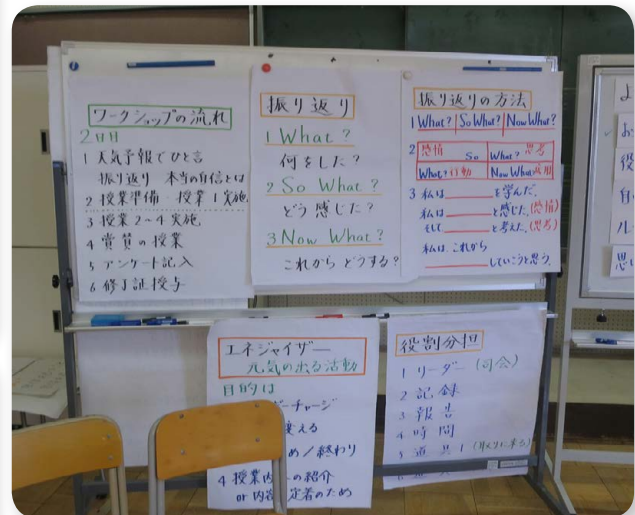 ワークショップの流れ
2日目
1 天気予報でひと言
振り返り 本当の自信とは
2 授業準備 授業1実施
3 授業2~4実施
4 賞賛の授業
5 アンケート記入
6 修了証授与
振り返り
1 What?
何をした?
2 So What?
どう感じた?
3 Now What?
これからどうする?
振り返りの方法
1 What? So What? Now What?
2 感情 So What? 思考
What? 行動 Now What 適用
3 私は を学んだ。
私は と感じた。(感情)
そして と考えた。(思考)
私は これから
していこうと思う。
エネジャイザー
元気の出る活動
目的は
チャージ
変える
め/終わり
4 授業内 の紹介
or 内容 定着のため
役割分担
1 リーダー (司会)
2 記録
3 報告
4 時間
5 道具1 (取りに来る)
よ
お
役
自
ル
思い